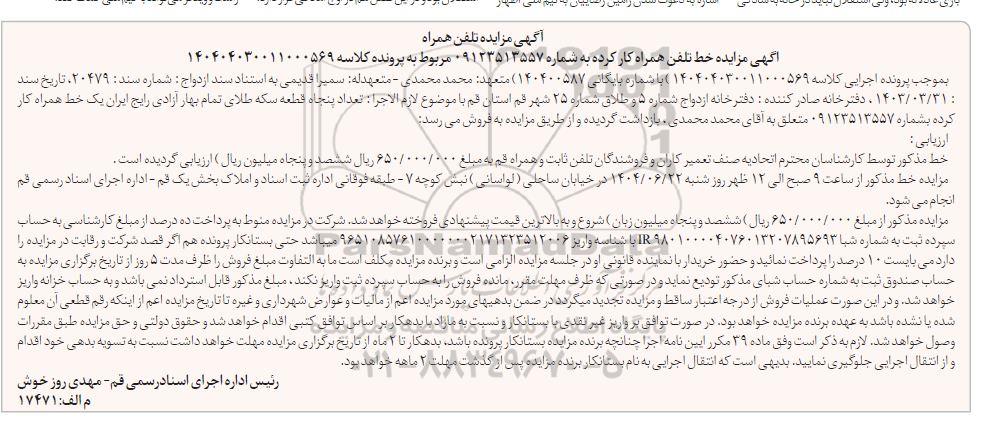 آگهی مزایده تلفن همراه
اگهی مزایده خط تلفن همراه کار کرده به شماره ۰۹۱۲۳۵۱۳۵۵۷ مربوط به پرونده کلاسه ۱۴۰۴۰۴۰۳۰۰۱۱۰۰۰۵۶۹
بموجب پرونده اجرایی کلاسه ۱۴۰۴۰۴۰۳۰۰۱۱۰۰۰۵۶۹ (با شماره بایگانی ۱۴۰۴۰۰۵۸۷) متعهد: محمد محمدی - متعهدله: سمیرا قدیمی به استناد سند ازدواج: شماره سند: ۲۰۴۷۹، تاریخ سند
: ۱۴۰۳/۰۳/۳۱، دفترخانه صادر کننده: دفترخانه ازدواج شماره ۵ و طلاق شماره ۲۵ شهر قم استان قم با موضوع لازم الاجرا: تعداد پنجاه قطعه سکه طلای تمام بهار آزادی رایج ایران یک خط همراه کار
کرده بشماره ۰۹۱۲۳۵۱۳۵۵۷ متعلق به آقای محمد محمدی، بازداشت گردیده و از طریق مزایده به فروش می رسد:
ارزیابی:
خط مذکور توسط کارشناسان محترم اتحادیه صنف تعمیر کاران و فروشندگان تلفن ثابت و همراه قم به مبلغ ۶۵۰/۰۰۰/۰۰۰ ریال ششصد و پنجاه میلیون ریال) ارزیابی گردیده است.
مزایده خط مذکور از ساعت ۹ صبح الی ۱۲ ظهر روز شنبه ۱۴۰۴/۰۶/۲۲ در خیابان ساحلی (لواسانی) نبش کوچه ۷ - طبقه فوقانی اداره ثبت اسناد و املاک بخش یک قم - اداره اجرای اسناد رسمی قم
انجام می شود.
مزایده مذکور از مبلغ ۶۵۰/۰۰۰/۰۰۰ ریال) ششصد و پنجاه میلیون زبان) شروع و به بالاترین قیمت پیشنهادی فروخته خواهد شد. شرکت در مزایده منوط به پرداخت ده درصد از مبلغ کارشناسی به حساب
سپرده ثبت به شماره شبا IR ۹۸۰۱۰۰۰۰۴۰۷۶۰۱۳۲۰۷۸۹۵۶۹۳ با شناسه واریز ۹۶۵۱۰۸۵۷۶۱۰۰۰۰۰۰۰۲۱۷۱۳۲۳۵۱۲۰۰۶ میباشد حتی بستانکار پرونده هم اگر قصد شرکت و رقابت در مزایده را
دارد می بایست ۱۰ درصد را پرداخت نمائید و حضور خریدار یا نماینده قانونی او در جلسه مزایده الزامی است و برنده مزایده مکلف است ما به التفاوت مبلغ فروش را ظرف مدت ۵ روز از تاریخ برگزاری مزایده به
حساب صندوق ثبت به شماره حساب شبای مذکور تودیع نماید و در صورتی که ظرف مهلت مقرر، مانده فروش را به حساب سپرده ثبت واریز نکند، مبلغ مذکور قابل استرداد نمی باشد و به حساب خزانه واریز
خواهد شد. و در این صورت عملیات فروش از درجه اعتبار ساقط و مزایده تجدید میگردد در ضمن بدهیهای مورد مزایده اعم از مالیات و عوارض شهرداری و غیره تا تاریخ مزایده اعم از اینکه رقم قطعی آن معلوم
شده یا نشده باشد به عهده برنده مزایده خواهد بود. در صورت توافق بر واریز غیر نقدی با بستانکار و نسبت به مازاد با بدهکار بر اساس توافق کتبی اقدام خواهد شد و حقوق دولتی و حق مزایده طبق مقررات
وصول خواهد شد. لازم به ذکر است وفق ماده ۳۹ مکرر ایین نامه اجرا چنانچه برنده مزایده بستانکار پرونده باشد، بدهکار تا ۲ ماه از تاریخ برگزاری مزایده مهلت خواهد داشت نسبت به تسویه بدهی خود اقدام
و از انتقال اجرایی جلوگیری نمایید. بدیهی است که انتقال اجرایی به نام بستانکار برنده مزایده پس از گذشت مهلت ۲ ماهه خواهد بود.
رئیس اداره اجرای اسنادرسمی قم - مهدی روز خوش
م الف: ۱۷۴۷۱